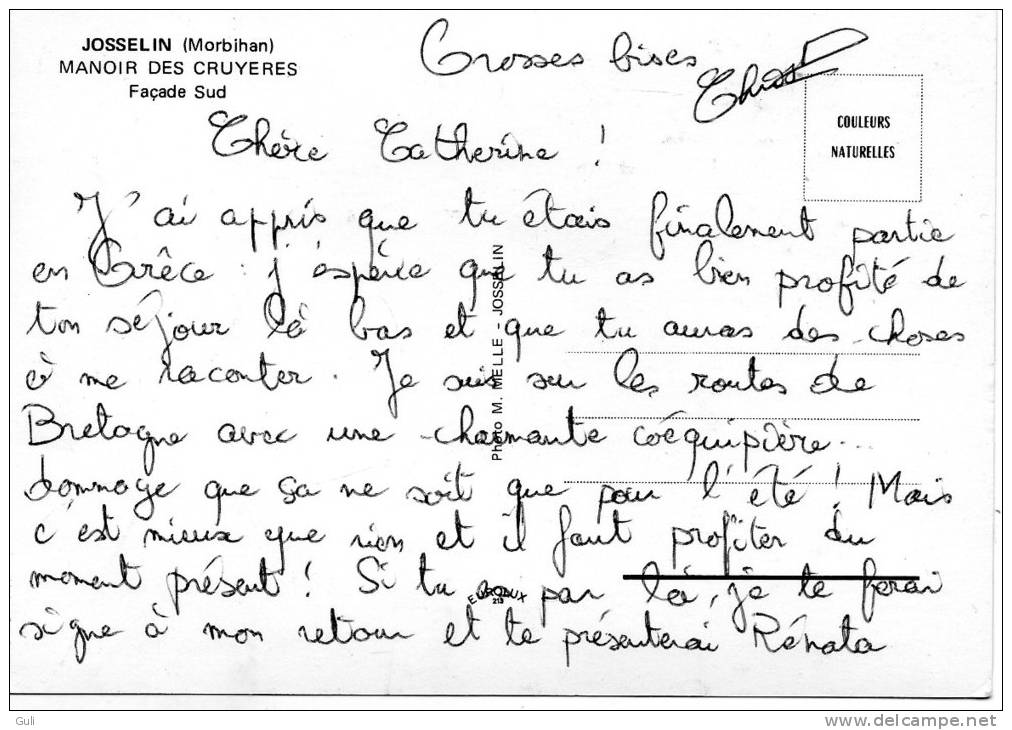 JOSSELIN (Morbihan)
MANOIR DES CRUYERES
Façade Sud
Grosses bises
COULEURS
NATURELLES
Chère Catherine !
J'ai appris que tu étais finalement partie
en Grèce : j'espère que tu as bien profité de
ton séjour là bas et que tu auras des choses
à me raconter. Je suis sur les routes de
Bretagne avec une charmante coéquipière...
dommage que ça ne soit que pour l'été ! Mais
c'est mieux que rien et il faut profiter du
moment présent ! Si tu par là, je te ferai
signe à mon retour et te présenterai Rénata
Photo M. MELLE - JOSSELIN
EUROLUX
Guli
www.delcampe.net